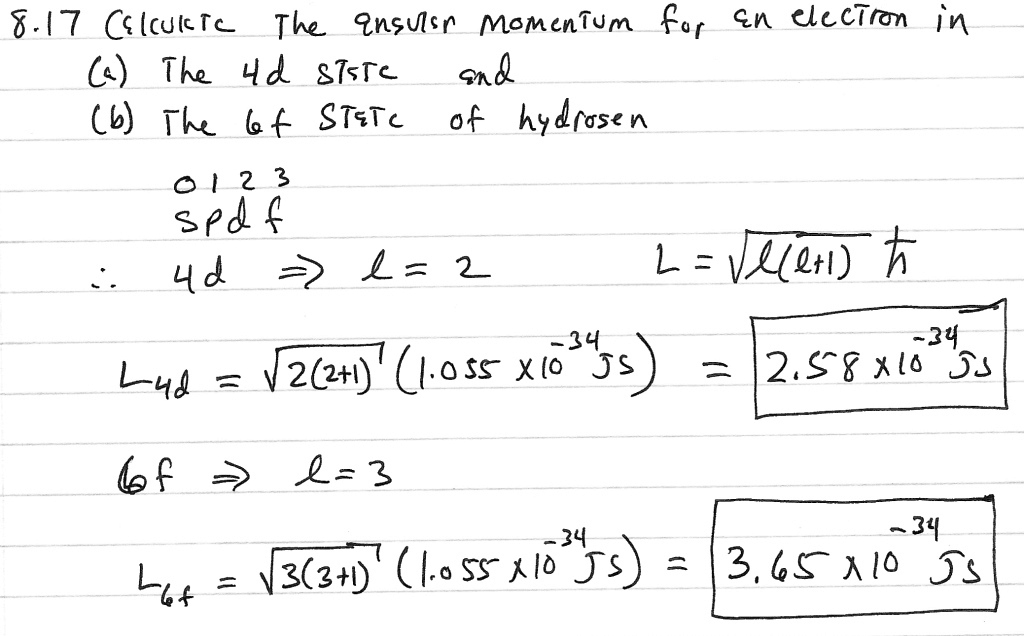 8.17 Calculate The angular momentum for an electron in
(a) The 4d state and
(b) The 6f state of hydrogen
0 1 2 3
s p d f
∴ 4d ⇒ l = 2 L = √l(l+1) ħ
L4d = √2(2+1) (1.055 x10^-34 Js) = 2.58 x10^-34 Js
6f ⇒ l = 3
L6f = √3(3+1) (1.055 x10^-34 Js) = 3.65 x10^-34 Js